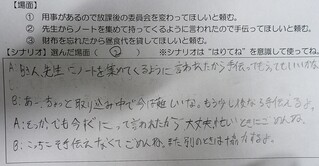 【場面】
① 用事があるので放課後の委員会を変わってほしいと頼む。
② 先生からノートを集めて持ってくるように言われたので手伝ってほしいと頼む。
③ 財布を忘れたから昼食代を貸してほしいと頼む。
【シナリオ】選んだ場面（②）　※シナリオは“はりてね”を意識して使ってね。
A： 先生にノートを集めてくるように言われたから手伝ってもらってもいいかな
B：あー、ちょっと取り込み中で今は難しいな。もう少し後なら手伝えるよ。
A：そっか、でも今すぐにって言われたから大丈夫、忙しいときにごめんね。
B：こっちこそ手伝えなくてごめんね。また別のときは協力するよ。